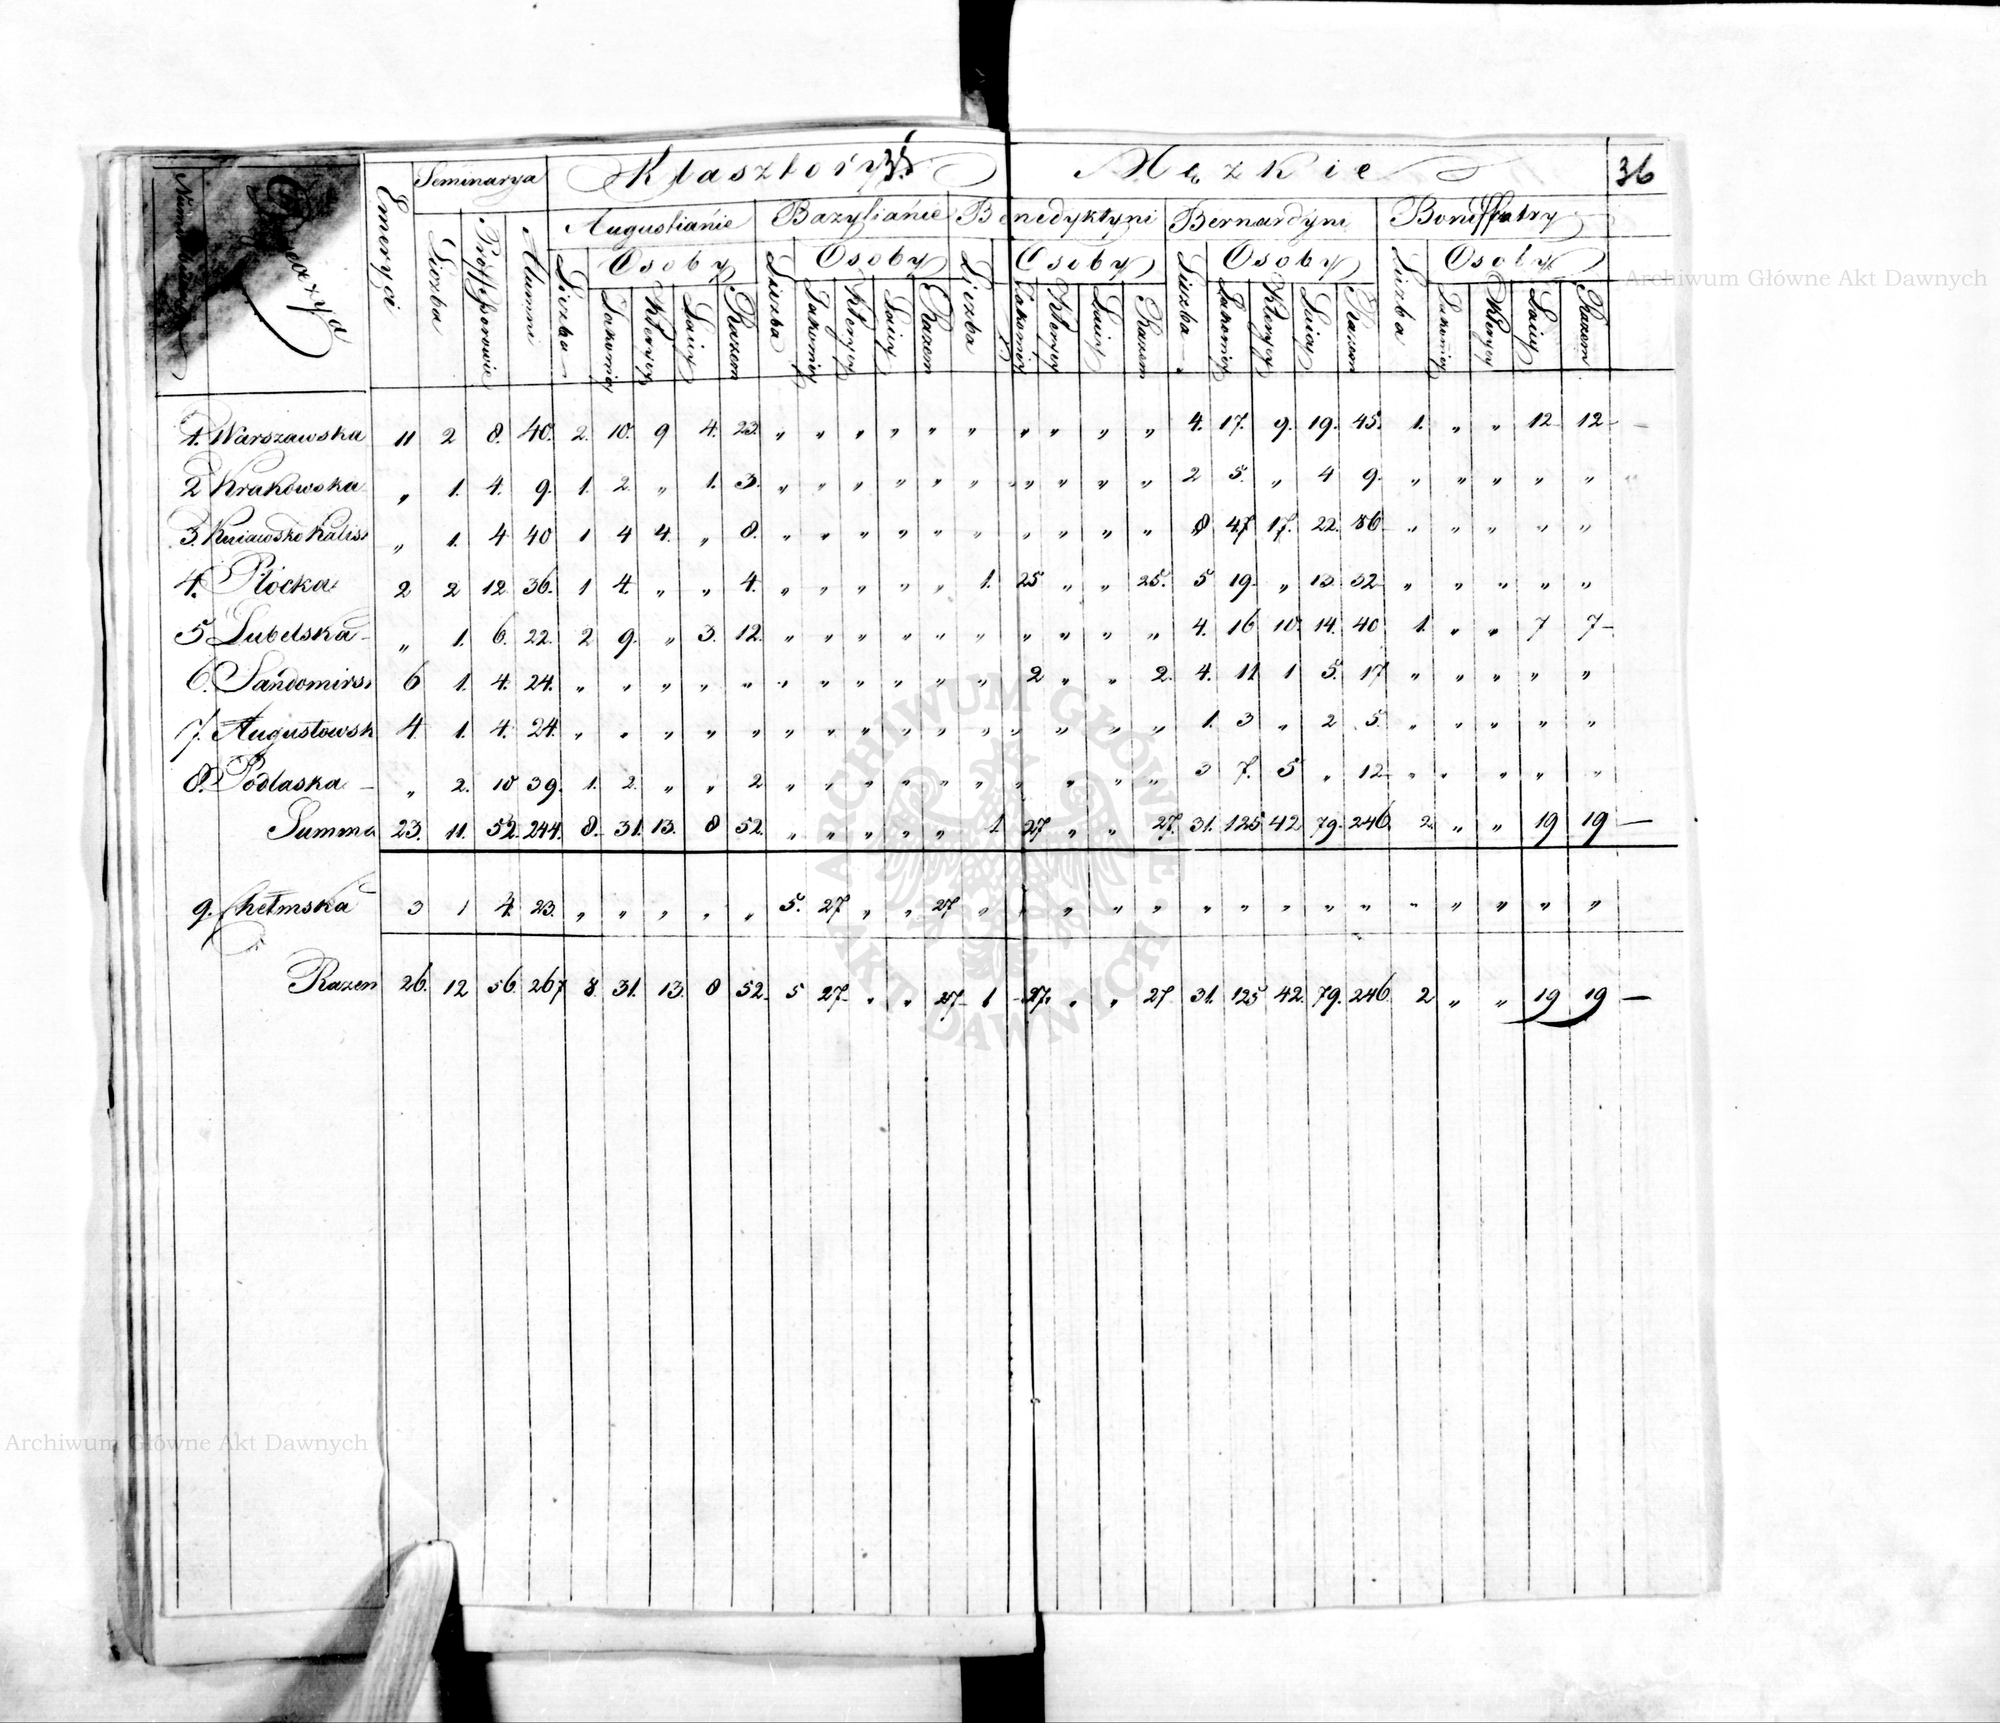 Klasztory 35 Męzkie 36
Dyecezya Emeryci Seminarya Augustianie Bazylianie Benedyktyni Bernardyni Boniffratry
Liczba Professorowie Alumni Liczba Osoby Liczba Osoby Liczba Osoby Liczba Osoby Liczba Osoby
Zakonnicy Klerycy Laicy Razem Zakonnicy Klerycy Laicy Razem Zakonnicy Klerycy Laicy Razem Zakonnicy Klerycy Laicy Razem Zakonnicy Klerycy Laicy Razem
1. Warszawska 11 2 8. 40. 2. 10. 9 4. 23. " " " " " " " " " " 4. 17. 9. 19. 45. 1. " " 12 12
2 Krakowska " 1. 4. 9. 1. 2. " 1. 3. " " " " " " " " " " 2 5. " 4 9. " " " " "
3. Kuiawsko Kalis " 1. 4 40 1 4 4. " 8. " " " " " " " " " " 8 47 17. 22. 86 " " " " "
4. Płocka 2 2 12 36. 1 4. " " 4. " " " " " 1. 25 " " 25. 5 19. " 13 32 " " " " "
5 Lubelska " 1. 6. 22. 2 9. " 3. 12. " " " " " " " " " " 4. 16 10. 14. 40 1. " " 7 7
6. Sandomirs 6 1. 4. 24. " " " " " " " " " " " 2 " " 2. 4. 11 1 5. 17 " " " " "
7. Augustowsk 4. 1. 4. 24. " " " " " " " " " " " " " " " 1. 3 " 2 5. " " " " "
8. Podlaska " 2. 10 39. 1. 2. " " 2 " " " " " " " " " " 3 7. 5 " 12 " " " " "
Summa 23. 11. 52. 244. 8. 31. 13. 8 52. " " " " " 1 27 " " 27. 31. 125 42 79. 246. 2 " " 19 19
9. Chełmska 3 1 4. 23. " " " " " 5. 27 " " 27 " " " " " " " " " " " " " " "
Razem 26. 12 56 267 8 31. 13. 8 52. 5 27 " " 27 1 27. " " 27 31. 125 42. 79. 246 2 " " 19 19
Archiwum Główne Akt Dawnych
Archiwum Główne Akt Dawnych
ARCHIWUM GŁÓWNE AKT DAWNYCH